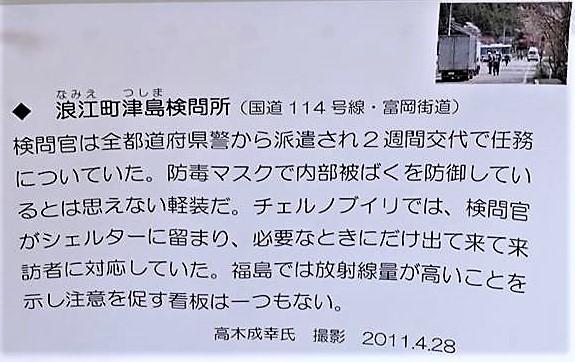 なみえ つしま
◆ 浪江町津島検問所（国道114号線・富岡街道）
検問官は全都道府県警から派遣され2週間交代で任務
についていた。防毒マスクで内部被ばくを防御してい
るとは思えない軽装だ。チェルノブイリでは、検問官
がシェルターに留まり、必要なときにだけ出て来て来
訪者に対応していた。福島では放射線量が高いことを
示し注意を促す看板は一つもない。
高木成幸氏 撮影 2011.4.28